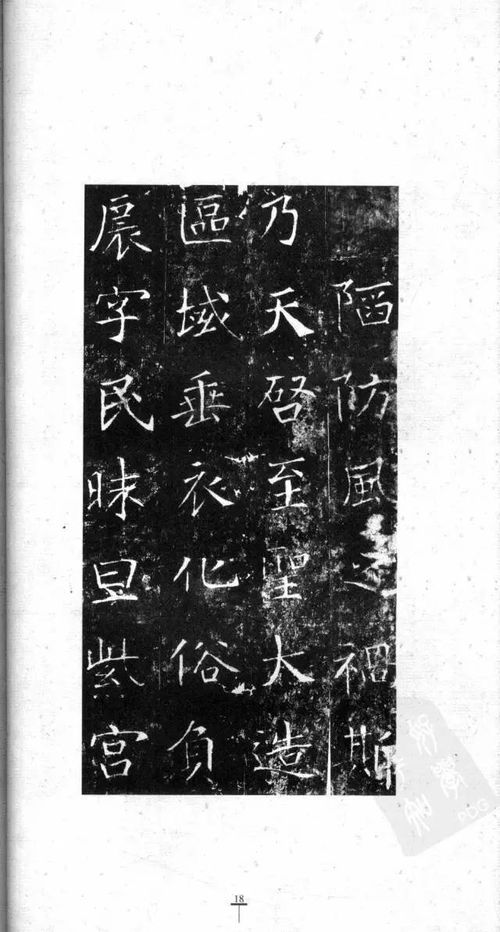 陋防風禍斯
乃天啓至聖大造
區域垂衣化俗負
扆字民昧旦紫宮
18
PDG